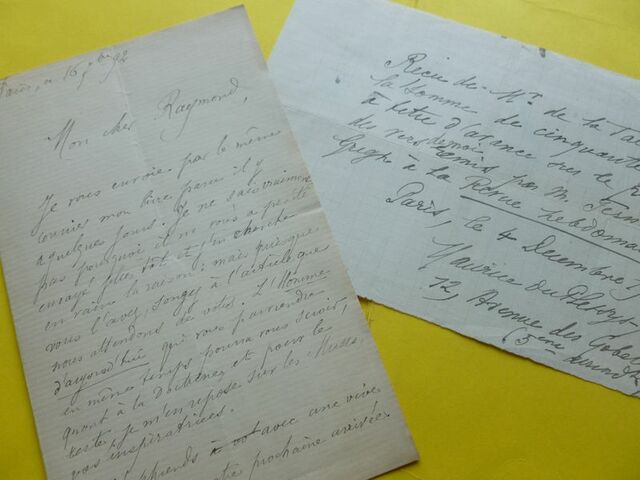 Paris, ce 16 9bre 92
Mon cher Raymond,
Je vous envoie par le même
courrier mon livre paru il y
a quelques jours. Je ne sais vraiment
pas pourquoi il ne vous a
envoyé plus tôt et j'en cherche
en vain la raison; mais puisque
vous l'avez, songez à l'article que
nous attendons de vous. L'Homme
d'aujourd'hui qui vous parviendra
en même temps pourra vous servir,
quant à la doctrine, et pour le
reste, je m'en repose sur les Muses,
vos inspiratrices.
avec une vive
prochaine arrivée.
Reçu de Mr de la
la somme de cinquante
à titre d'avance sur le
des vers remis par M.
Gregh à la Revue hebdoma
Paris, le 4 décembre
Maurice du Plessys
12, Avenue des Gobe
5ème